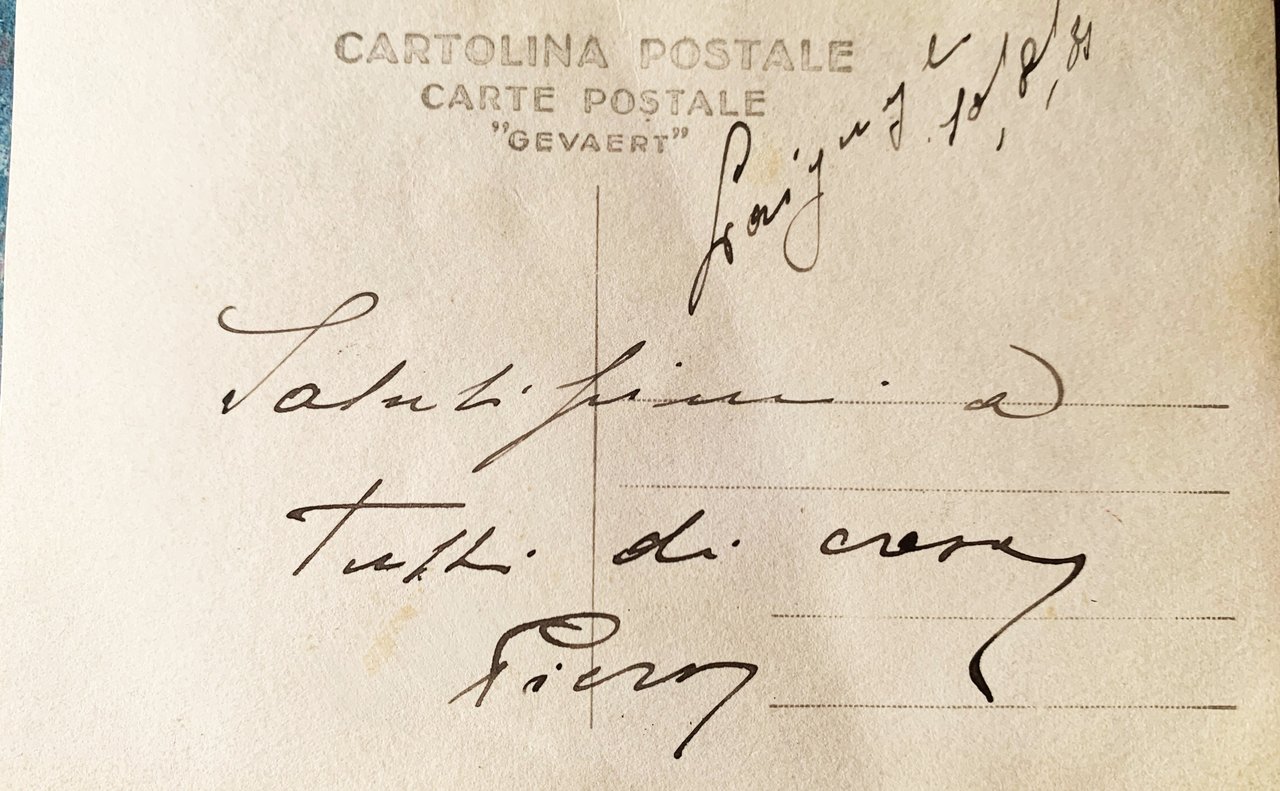 CARTOLINA POSTALE
CARTE POSTALE
"GEVAERT"
10, 8,
Salutissimi a
Tutti di casa
Piero